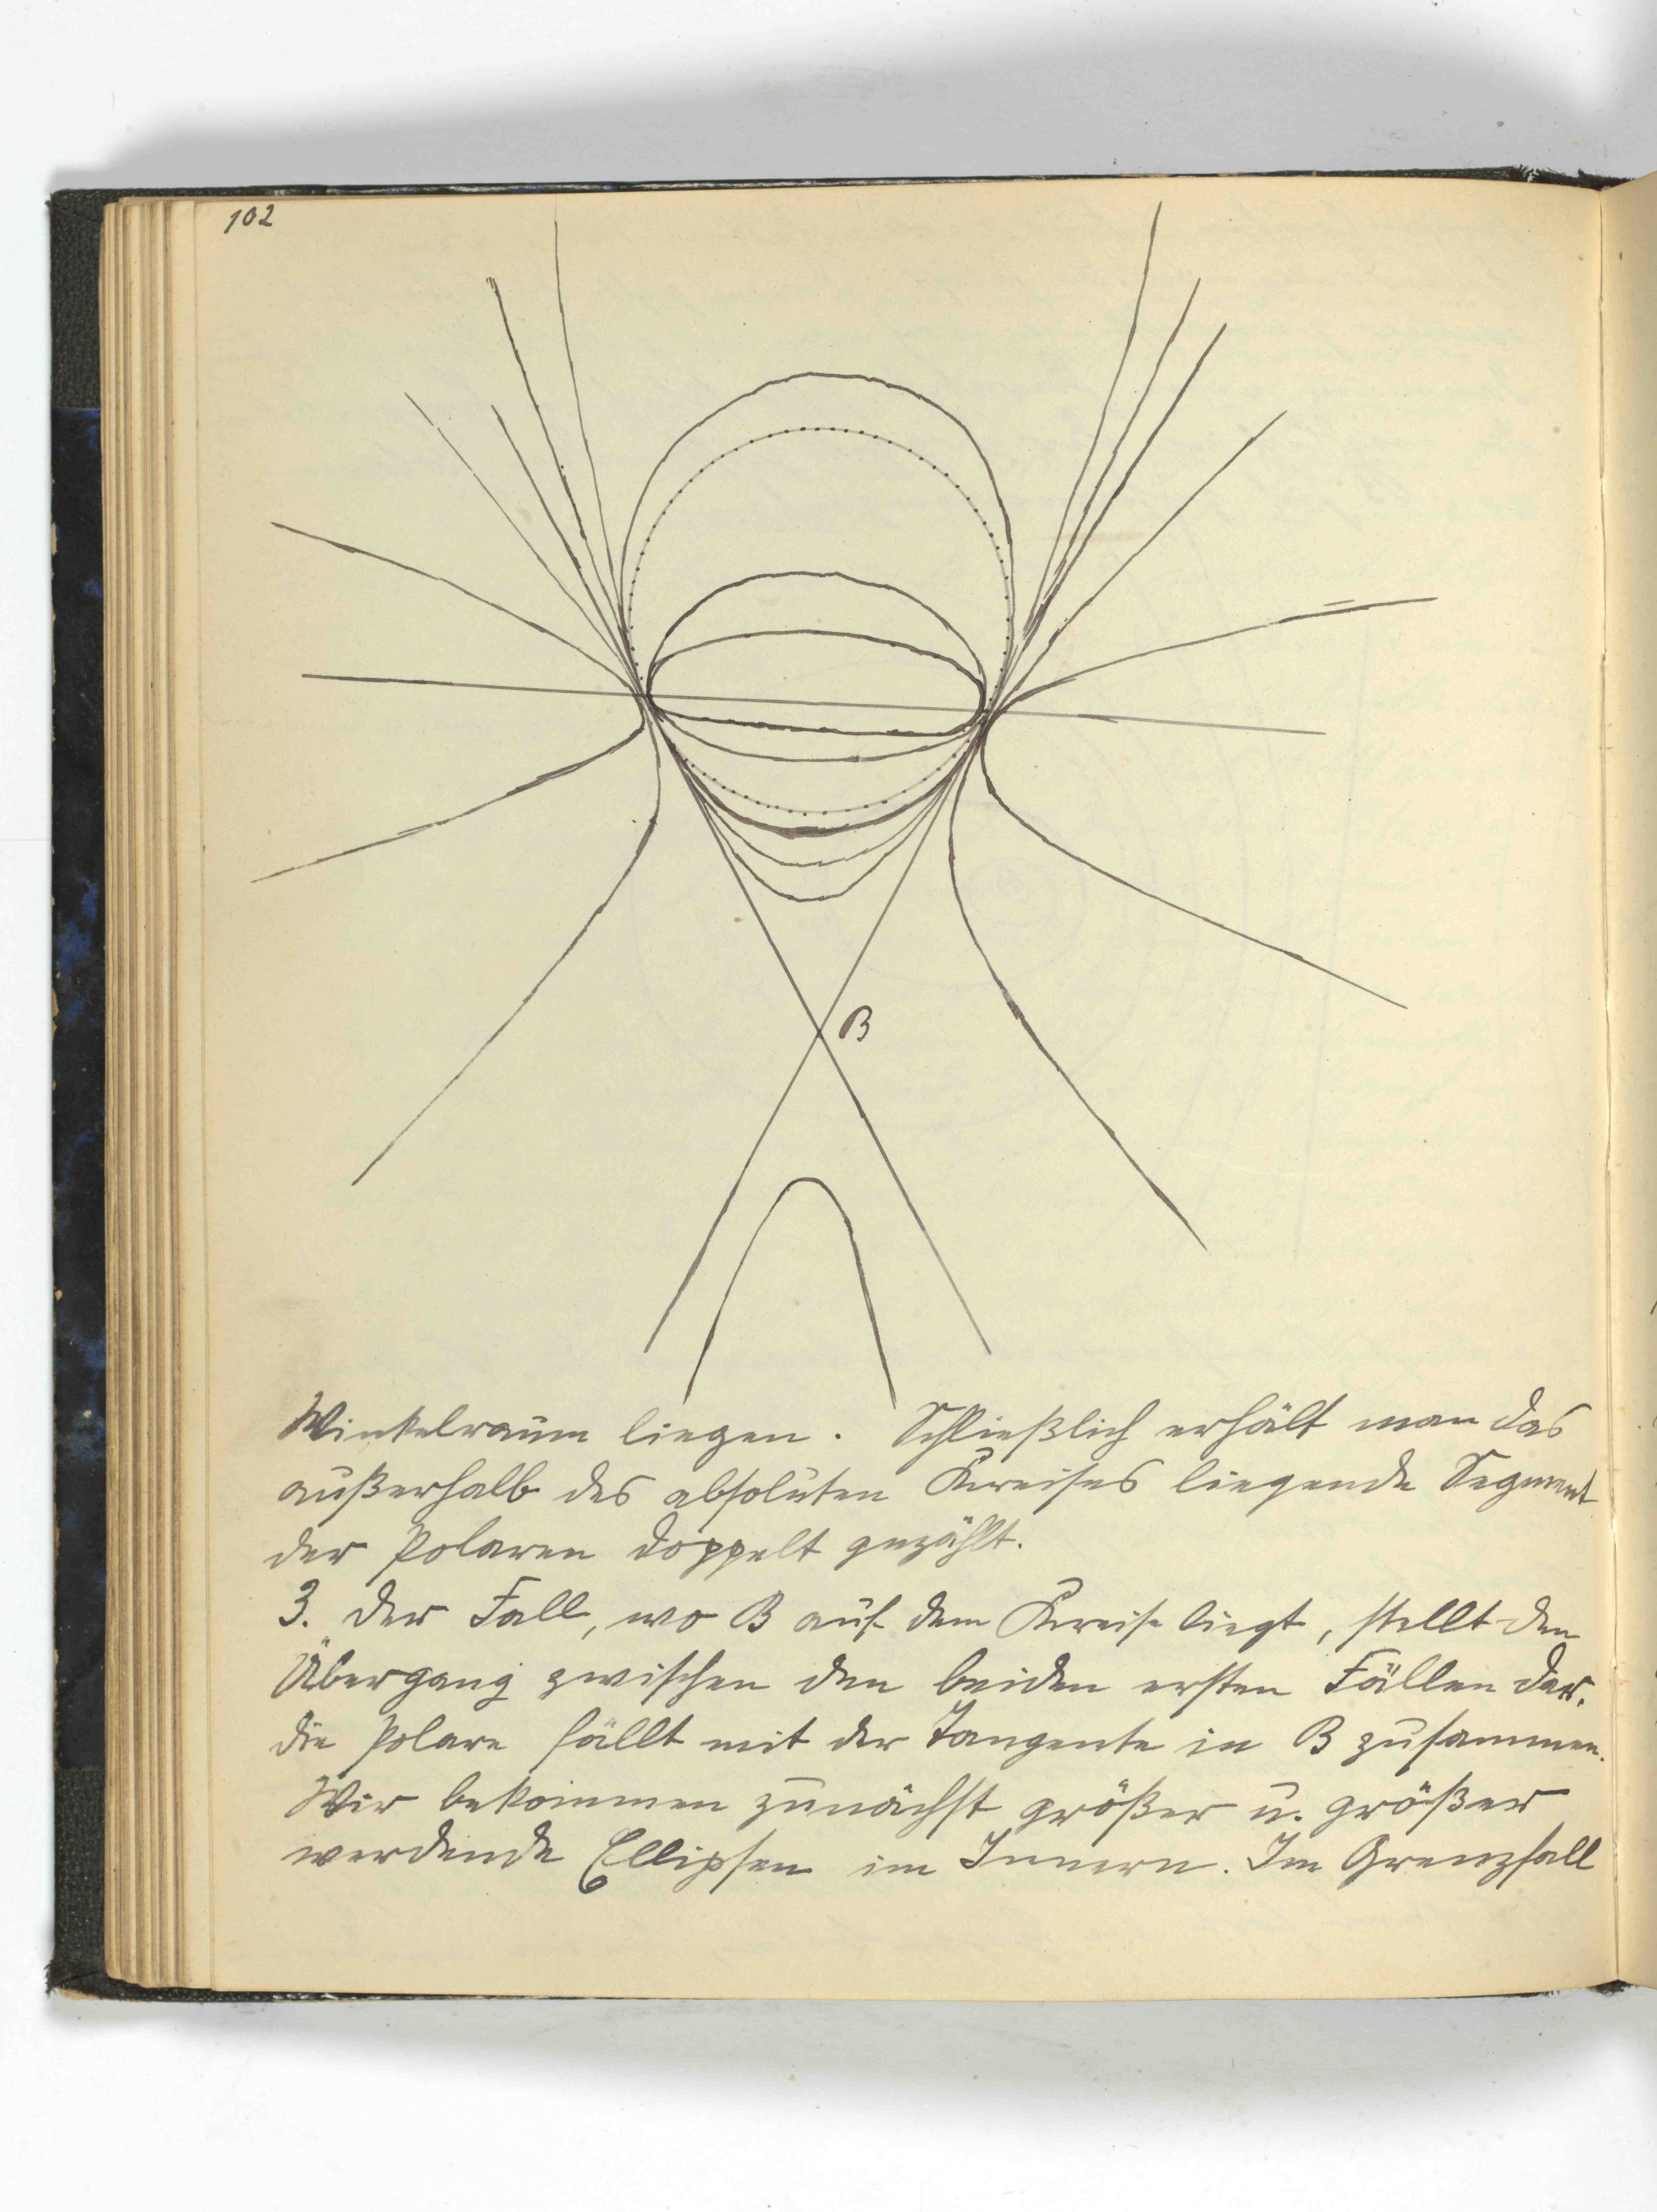 102
B
Winkelraum liegen. Schließlich erhält man das
außerhalb des absoluten Kreises liegende Segment
der Polaren doppelt gezählt.
3. Der Fall, wo B auf dem Kreise liegt, stellt den
Übergang zwischen den beiden ersten Fällen dar.
Die Polare fällt mit der Tangente in B zusammen.
Wir bekommen zunächst größer u. größer
werdende Ellipsen im Innern. Im Grenzfall